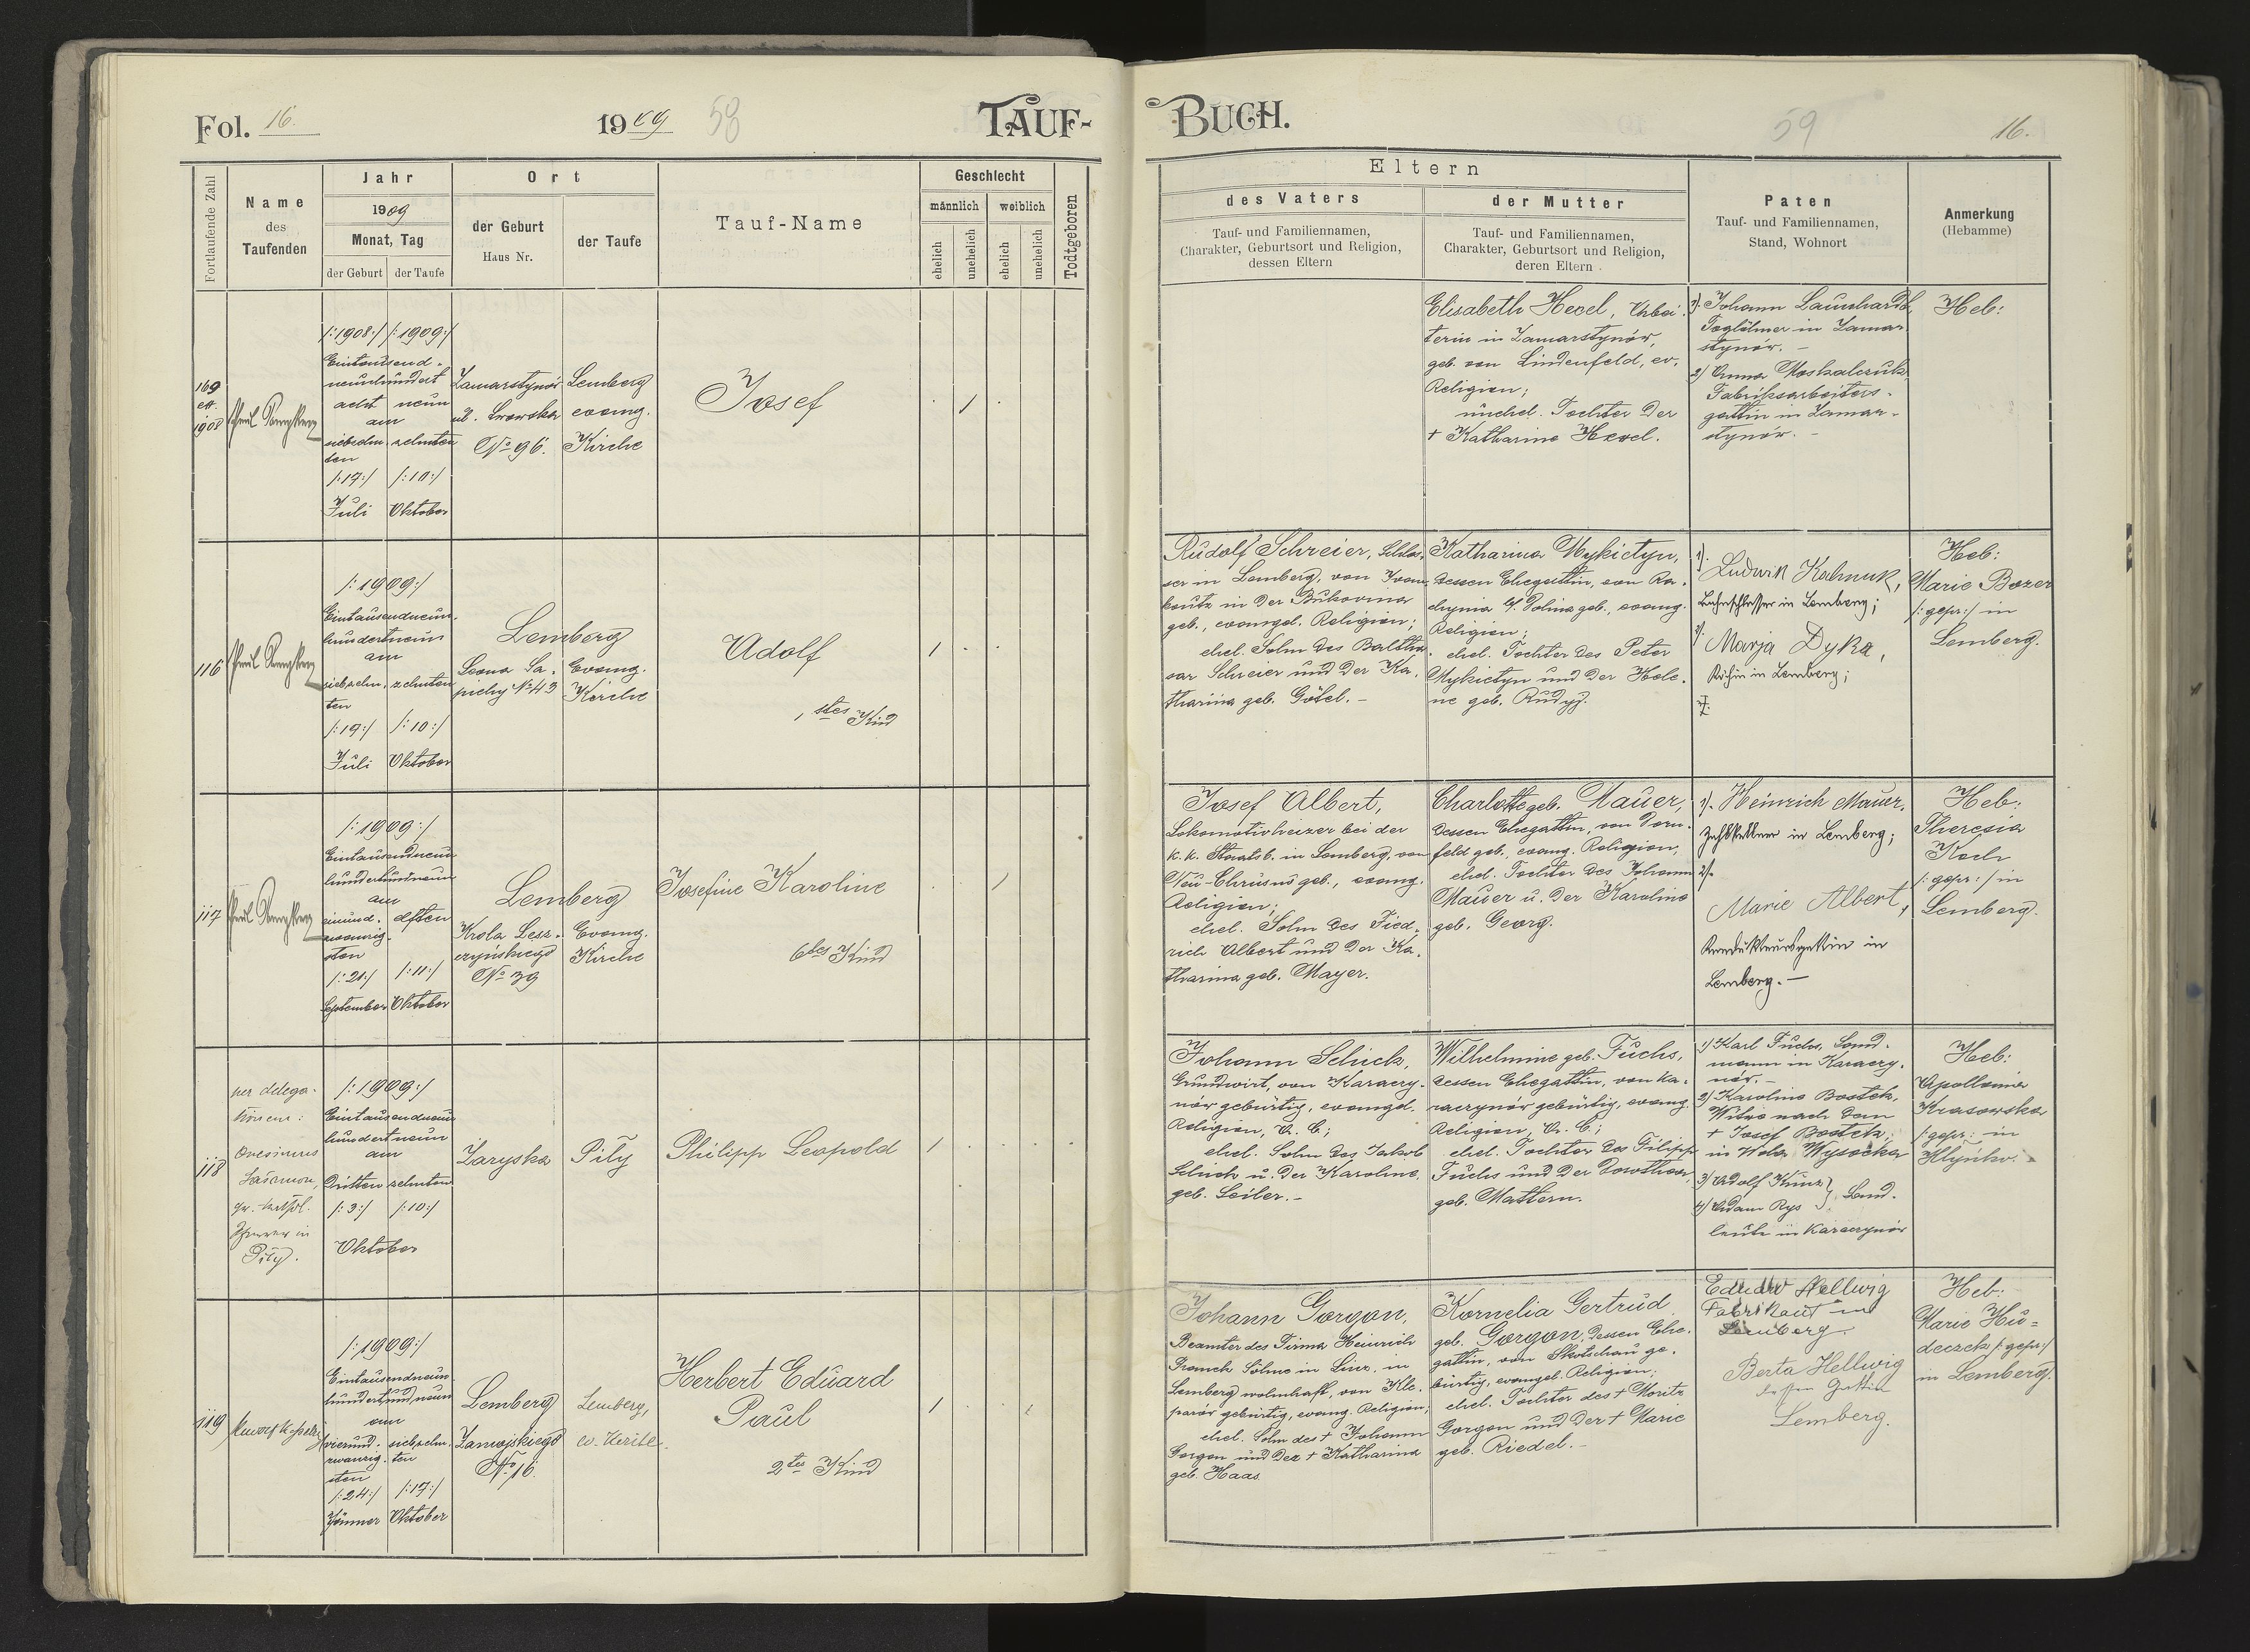 Fol. 16.
1909
58
TAUF-
BUCH.
59
16.
Fortlaufende Zahl
Name
des
Taufenden
Jahr
1909
Monat, Tag
der Geburt
der Taufe
Ort
der Geburt
Haus Nr.
der Taufe
Tauf-Name
Geschlecht
männlich
weiblich
ehelich
unehelich
ehelich
unehelich
Todtgeboren
Eltern
des Vaters
Tauf- und Familiennamen,
Charakter, Geburtsort und Religion,
dessen Eltern
der Mutter
Tauf- und Familiennamen,
Charakter, Geburtsort und Religion,
deren Eltern
Paten
Tauf- und Familiennamen,
Stand, Wohnort
Anmerkung
(Hebamme)
169
1908
/:1908:/ /:1909:/
Eintausend-
neunhundert
acht neun
am
siebzehn- zehnten
ten
/:17:/ /:10:/
Juli Oktober
Zamarstynów
ul. Lwowska
No 96.
Lemberg
evang.
Kirche
Josef
1
Elisabeth Hecel, Arbei-
terin in Zamarstynów,
geb. von Lindenfeld, ev.
Religion;
unehel. Tochter der
+ Katharina Hecel.
1). Johann Launhardt,
Taglöhner in Zamar-
stynów. -
2) Anna Moskalczuk
Fabriksarbeiters-
gattin in Zamar-
stynów. -
Heb:
116
/:1909:/
Eintausendneun-
hundertneun
am
siebzehn- zehnten
ten
/:17:/ /:10:/
Juli Oktober
Lemberg
Leona Sa-
piehy No 43
Evang.
Kirche
Adolf
1stes Kind
1
Rudolf Schreier, Schlos-
ser in Lemberg, von Ivan-
koutz in der Bukovina
geb., evangel. Religion;
ehel. Sohn des Baltha-
sar Schreier und der Ka-
tharina geb. Götel. -
Katharina Mykietyn,
dessen Ehegattin, von Ra-
chynia b/ Dolina geb., evang.
Religion;
ehel. Tochter des Peter
Mykietyn und der Hele-
ne geb. Rudyj.
1). Ludwik Kahnuk,
Bahnschlosser in Lemberg;
2). Marja Dyka,
Köchin in Lemberg;
Heb:
Marie Bozer
/:gepr:/ in
Lemberg.
117
/:1909:/
Eintausendneun
hundertundneun
am
einund- elften
zwanzig-
sten
/:21:/ /:11:/
September Oktober
Lemberg
Krola Lesz-
czyńskiego
No 39
Evang.
Kirche
Josefine Karoline
6tes Kind
1
Josef Albert,
Lokomotivheizer bei der
k. k. Staatsb. in Lemberg, von
Neu-Chrusno geb., evang.
Religion;
ehel. Sohn des Fried-
rich Albert und der Ka-
tharina geb. Mayer.
Charlotte geb. Mauer,
dessen Ehegattin, von Dorn-
feld geb., evang. Religion,
ehel. Tochter des Johann
Mauer u. der Karoline
geb. Georg.
1). Heinrich Mauer,
Zahlkellner in Lemberg;
2).
Marie Albert,
Kondukteursgattin in
Lemberg. -
Heb:
Theresia
Koch
/:gepr:/ in
Lemberg.
118
per delega-
tionem:
gr. kathol.
Pfarrer in
Pily.
/:1909:/
Eintausendneun
hundertneun
am
Dritten zehnten
/:3:/ /:10:/
Oktober
Zaryska
Pily
Philipp Leopold
1
Johann Schick,
Grundwirt, von Karaczy-
nów gebürtig, evangel.
Religion, A. C;
ehel. Sohn des Jakob
Schick u. der Karoline,
geb. Seiler. -
Wilhelmine geb. Fuchs,
dessen Ehegattin, von Ka-
raczynów gebürtig, evang.
Religion, A. C;
ehel. Tochter des Filipp
Fuchs und der Dorothea,
geb. Mattern.
1) Karl Fuchs, Land-
mann in Karaczy-
nów. -
2) Karoline Bostek,
Witwe nach dem
+ Josef Bostek,
in Wola Wysocka
3) Adolf Kunz
4) Adam Rys } Land-
leute in Karaczynów
Heb:
Apollonia
Krasowska
/:gepr: in
119
/:1909:/
Eintausendneun
hundertundneun
am
vierund- siebzehn-
zwanzig- ten
sten
/:24:/ /:17:/
Jänner Oktober
Lemberg
Zamojskiego
No 16.
Lemberg,
ev. Kirche.
Herbert Eduard
Paul
2tes Kind
1
Johann Gorgon,
Beamter des Firma Heinrich
Franck Söhne in Linz, in
Lemberg wohnhaft, von Kle-
parów gebürtig, evang. Religion,
ehel. Sohn des + Johann
Gorgon und der + Katharina
geb. Haas
Kornelia Gertrud
geb. Gorgon, dessen Ehe-
gattin, von Skotschau ge-
bürtig, evangel. Religion;
ehel. Tochter des + Moritz
Gorgon und der + Marie
geb. Riedel. -
Eduard Hellwig
Fabrikant in
Lemberg.
Berta Hellwig
dessen Gattin
Lemberg.
Heb:
Marie Hu-
deczek /:gepr:/
in Lemberg.